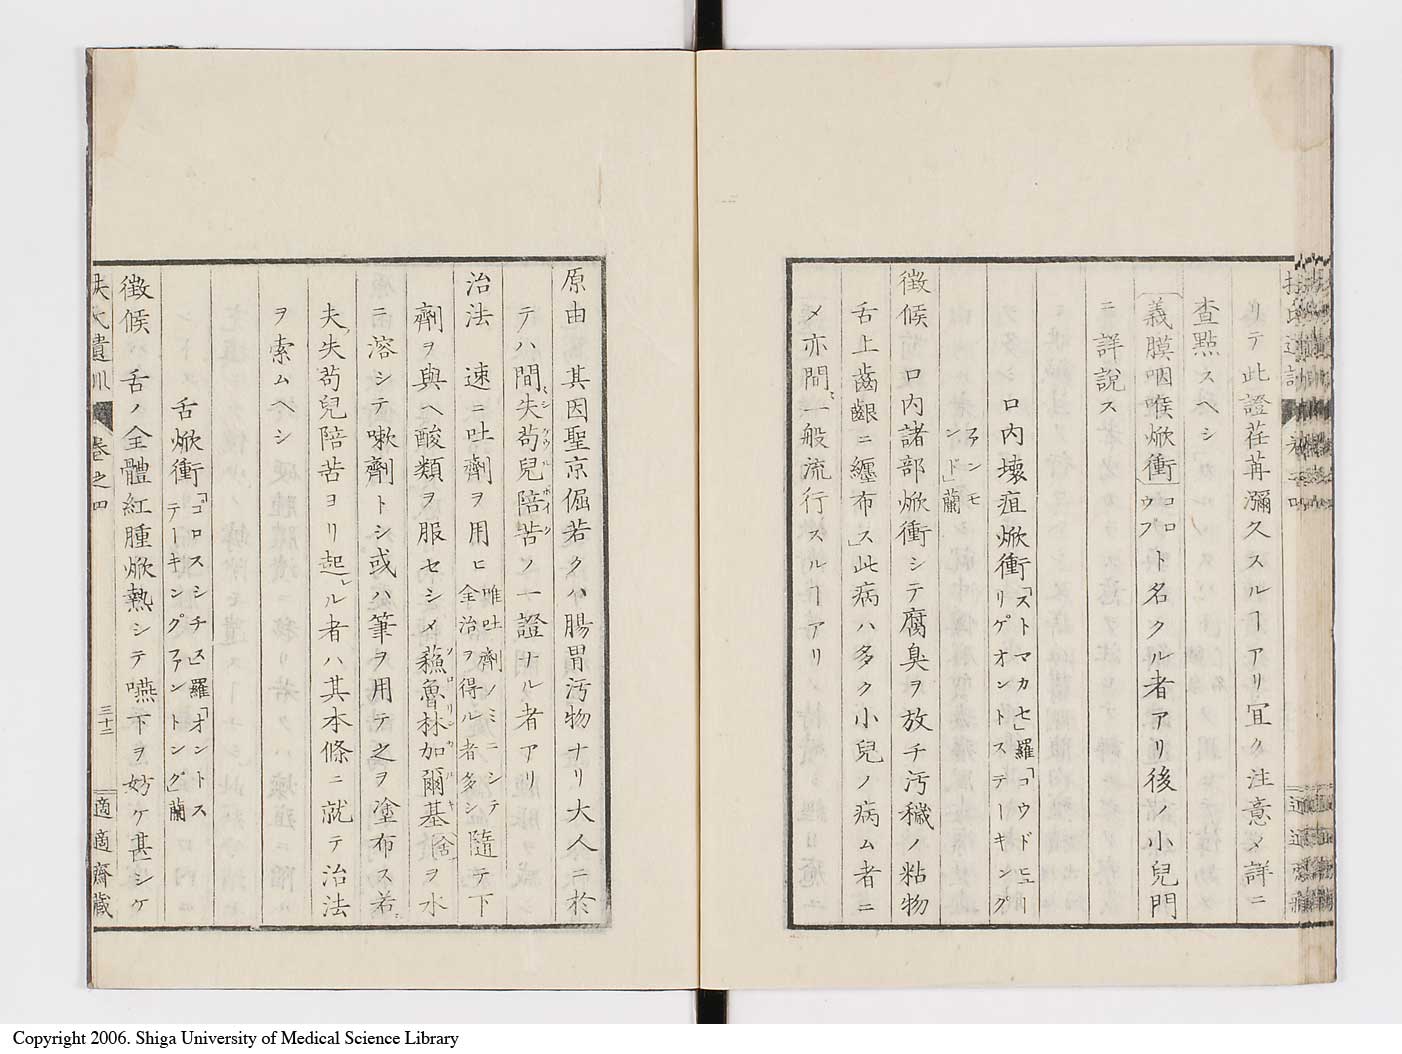 リテ此證荏苒瀰久スルヿアリ宜ク注意メ詳ニ
査點スヘシ
義膜咽喉焮衝コロウプト名クル者アリ後ノ小兒門
ニ詳説ス
口内壞疽焮衝「ストマカセ」羅「コウドヒューリゲオントステーキング
ファンモンド」蘭
徴候 口内諸部焮衝シテ腐臭ヲ放チ汚穢ノ粘物
舌上齒齦ニ纏布」ス此病ハ多ク小兒ノ病ム者ニ
メ亦間〻一般流行スルヿアリ
原由 其因聖京倔若クハ腸胃汚物ナリ大人ニ於
テハ間〻失苟兒陪苦ノ一證ナル者アリ
治法 速ニ吐劑ヲ用ヒ唯吐劑ノミニシテ全治ヲ得ル者多シ隨テ下
劑ヲ與ヘ酸類ヲ服セシメ蘓魯林加爾基舎ヲ水
ニ溶シテ嗽劑トシ或ハ筆ヲ用テ之ヲ塗布ス若
夫失苟兒陪苦ヨリ起ル者ハ其本條ニ就テ治法
ヲ索ムヘシ
舌焮衝「ゴロスシチス」羅「オントステーキングファントング」蘭
徴候 舌ノ全體紅腫焮熱シテ嚥下ヲ妨ケ甚シケ
扶氏遺訓 卷之四 三十二 適適齋藏
Copyright 2006. Shiga University of Medical Science Library